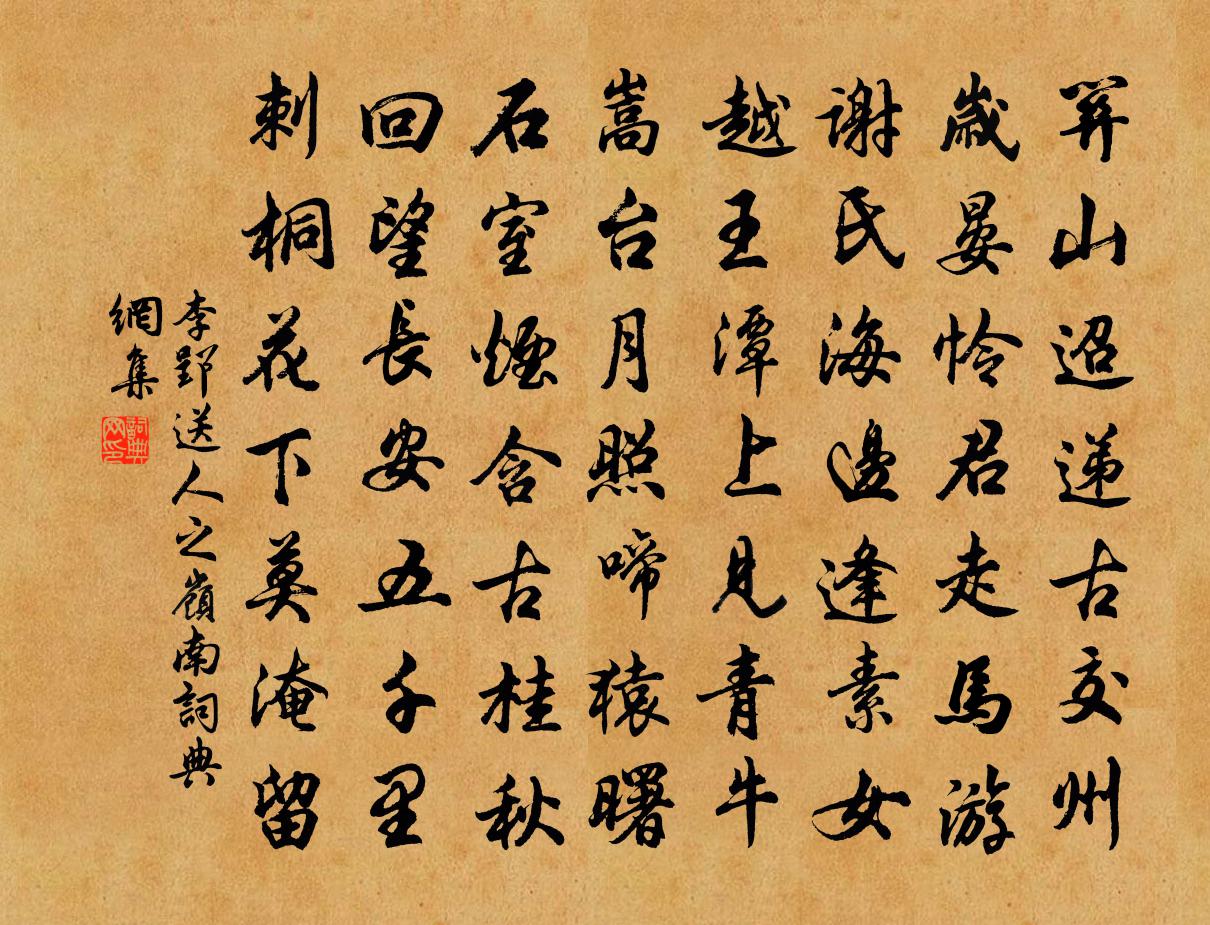 關山迢递古交州
歲晏怜君走馬游
谢氏海邊逢素女
越王潭上見青牛
嵩台月照啼猿曙
石室煙含古桂秋
回望長安五千里
刺桐花下莫淹留
李郢送人之嶺南詞典
網集
詞典網印